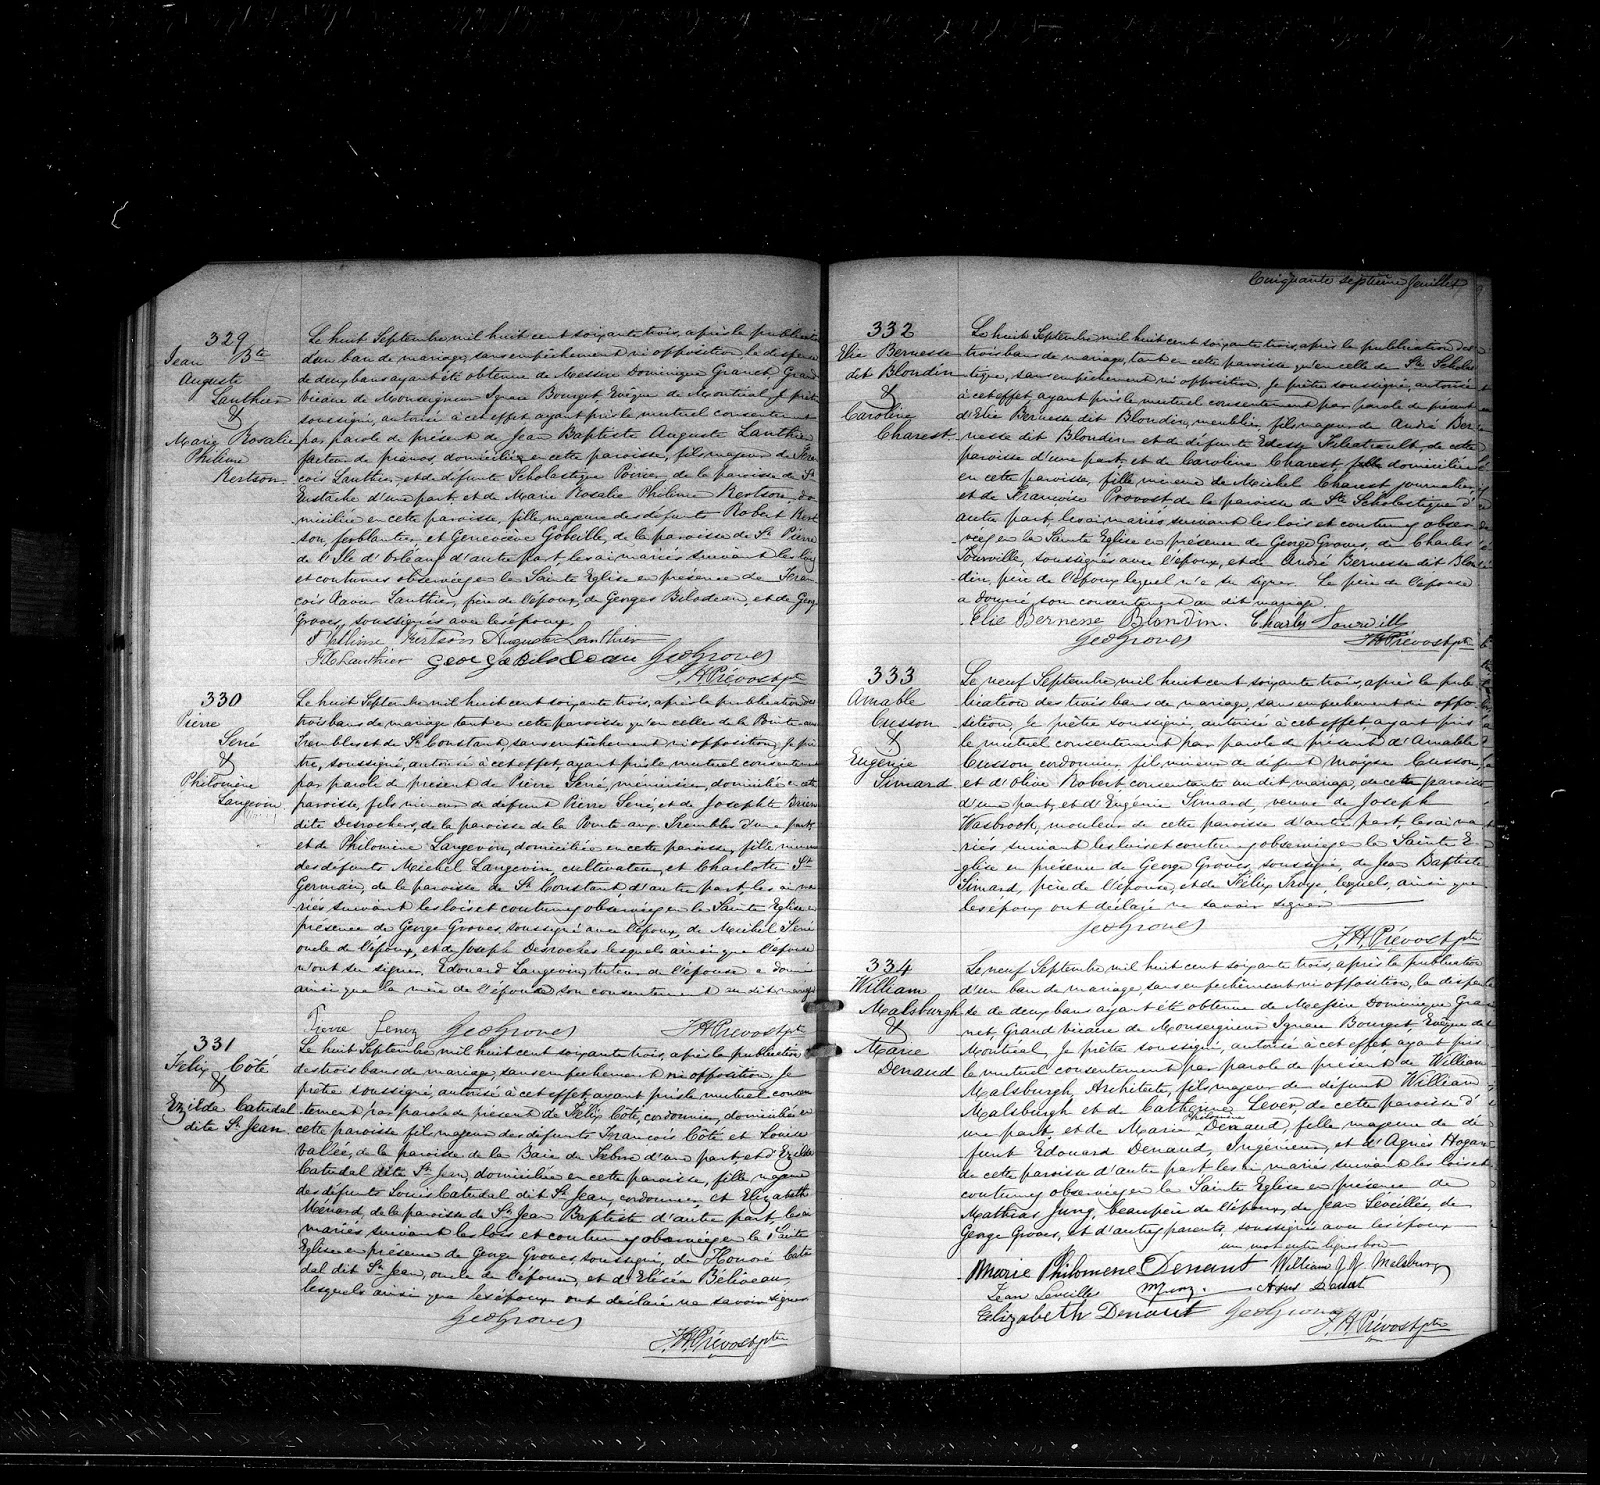 329
Jean Bte
Auguste
Lauthier
&
Marie Rosalie
Philime
Kertson
Le huit Septembre mil huit cent soixante trois, après la publication
d'un ban de mariage, sans empêchement ni opposition, la dispense
de deux bans ayant été obtenue de Messire Dominique Granet Grand
Vicaire de Monseigneur Ignace Bourget, Evêque de Montréal, Je prêtre
soussigné, autorisé à cet effet ayant pris le mutuel consentement
par parole de présent de Jean Baptiste Auguste Lauthier
facteur de pianos, domicilié en cette paroisse, fils majeur de Fran
çois Lauthier et de défunte Scholastique Poirier de la paroisse de St
Eustache d'une part, et de Marie Rosalie Philime Kertson, do
miciliée en cette paroisse, fille majeure des défunts Robert Kert
son, ferblantier, et Geneviève Gobeille, de la paroisse de St Pierre
de l'Ile d'Orléans d'autre part, les ai mariés suivant les lois
et coutumes observées en la Sainte Eglise en présence de Fran
çois Xavier Lauthier, frère de l'époux, de Georges Bilodeau, et de George
Groves, soussignés avec les époux.
Philime Kertson Auguste Lauthier
FX Lauthier George Bilodeau Geo Groves
J.H. Prévost ptre
330
Pierre
Sené
&
Philomène
Langevin
Le huit Septembre mil huit cent soixante trois, après la publication des
trois bans de mariage tant en cette paroisse qu'en celles de la Pointe aux
Trembles et de St Constant, sans empêchement ni opposition, Je prê
tre, soussigné, autorisé à cet effet, ayant pris le mutuel consentement
par parole de présent de Pierre Sené, menuisier, domicilié en cette
paroisse, fils mineur de défunt Pierre Sené, et de Josephte Brien
dite Desrochers, de la paroisse de la Pointe aux Trembles d'une part,
et de Philomène Langevin, domiciliée en cette paroisse, fille mineure
des défunts Michel Langevin, cultivateur, et Charlotte St
Germain, de la paroisse de St Constant, d'autre part, les ai ma
riés suivant les lois et coutumes observées en la Sainte Eglise en
présence de George Groves, soussigné avec l'époux, de Michel Sené
oncle de l'époux, et de Joseph Desroches lesquels ainsi que l'épouse
n'ont su signer. Edouard Langevin, tuteur de l'épouse a donné
ainsi que la mère de l'époux son consentement au dit mariage
Pierre Senez Geo Groves J.H. Prévost ptre
331
Félix Côté
&
Ezilda Catudal
dite St Jean
Le huit Septembre mil huit cent soixante trois, après la publication
des trois bans de mariage, sans empêchement ni opposition, Je
prêtre soussigné autorisé à cet effet, ayant pris le mutuel consen
tement par parole de présent de Félix Côté, cordonnier, domicilié en
cette paroisse fils majeur des défunts François Côté et Louise
Vallée, de la paroisse de la Baie du Febvre d'une part, et d'Ezilda
Catudal dite St Jean, domiciliée en cette paroisse, fille majeure
des défunts Louis Catudal dit St Jean, cordonnier, et Elizabeth
Ménard, de la paroisse de St Jean Baptiste d'autre part, les ai
mariés suivant les lois et coutumes observées en la Sainte
Eglise en présence de George Groves, soussigné, de Honoré Catu
dal dit St Jean, oncle de l'épouse, et d'Elisée Béliveau,
lesquels ainsi que les époux ont déclaré ne savoir signer
Geo Groves
J.H. Prévost ptre
Cinquante septième feuillet
332
Elie Bernesse
dit Blondin
&
Caroline
Charest
Le huit Septembre mil huit cent soixante trois, après la publication des
trois bans de mariage, tant en cette paroisse qu'en celle de Ste Scholas
tique, sans empêchement ni opposition, Je prêtre soussigné, autorisé
à cet effet, ayant pris le mutuel consentement par parole de présent
d'Elie Bernesse dit Blondin, meublier, fils majeur de André Ber
nesse dit Blondin et de défunte Edesse Filiatrault, de cette
paroisse d'une part, et de Caroline Charest, domiciliée
en cette paroisse, fille mineure de Michel Charest, journalier,
et de Françoise Provost, de la paroisse de Ste Scholastique d'
autre part, les ai mariés suivant les lois et coutumes obser
vées en la Sainte Eglise en présence de George Groves, de Charles
Tourville, soussignés avec l'époux, et de André Bernesse dit Blon
din, père de l'époux lequel n'a su signer. Le père de l'épouse
a donné son consentement au dit mariage.
Elie Bernesse Blondin. Charles Tourvill
Geo Groves J.H. Prévost ptre
333
Amable
Cusson
&
Eugénie
Simard
Le neuf Septembre mil huit cent soixante trois, après la pub
lication des trois bans de mariage, sans empêchement ni oppo
sition, Je prêtre soussigné, autorisé à cet effet, ayant pris
le mutuel consentement par parole de présent d'Amable
Cusson cordonnier, fils mineur de défunt Moyse Cusson,
et d'Olive Robert consentante au dit mariage, de cette paroisse
d'une part, et d'Eugénie Simard, veuve de Joseph
Wasbrook, mouleur de cette paroisse d'autre part, les ai ma
riés suivant les lois et coutumes observées en la Sainte E
glise en présence de George Groves, soussigné, de Jean Baptiste
Simard, père de l'épouse, et de Félix Troye, lesquels, ainsi que
les époux ont déclaré ne savoir signer
Geo Groves
J.H. Prévost ptre
334
William
Malsburgh
&
Marie
Denaud
Le neuf Septembre mil huit cent soixante trois, après la publication
d'un ban de mariage, sans empêchement ni opposition, la dispen
se de deux bans ayant été obtenue de Messire Dominique Gra
net, Grand Vicaire de Monseigneur Ignace Bourget, Evêque de
Montréal, Je prêtre soussigné, autorisé à cet effet ayant pris
le mutuel consentement par parole de présent de William
Malsburgh, Architecte, fils majeur de défunt William
Malsburgh et de Catherine Lever, de cette paroisse d'
une part, et de Marie Philomène Denaud, fille majeure de dé
funt Edouard Denaud, Ingénieur, et d'Agnès Hogan
de cette paroisse d'autre part, les ai mariés suivant les lois et
coutumes observées en la Sainte Eglise en présence de
Mathias Jung, beaupère de l'époux, de Jean Léveillée, de
George Groves, et d'autres parents, soussignés avec les époux
un mot entre lignes bon
Marie Philomene Denaut William J. Malsburg
Jean Leveille M Jung
Elizabeth Denaut Geo Groves J.H. Prévost ptre